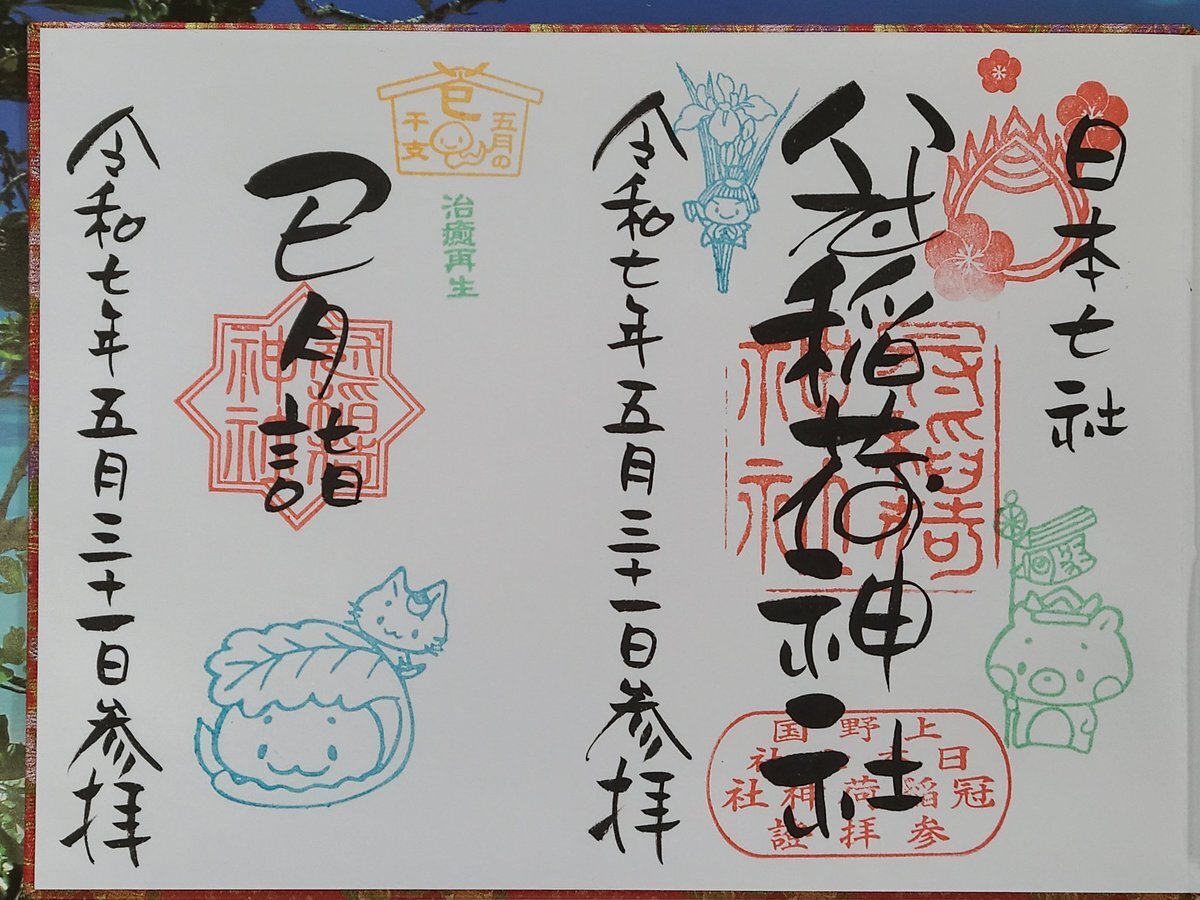 日本七社
冠稲荷神社
冠稲荷
神社
上野国
日本七社
冠稲荷神社
参拝證
令和七年五月三十一日参拝
五月の
巳
干支
治癒再生
巳月詣
冠稲荷
神社
令和七年五月三十一日参拝